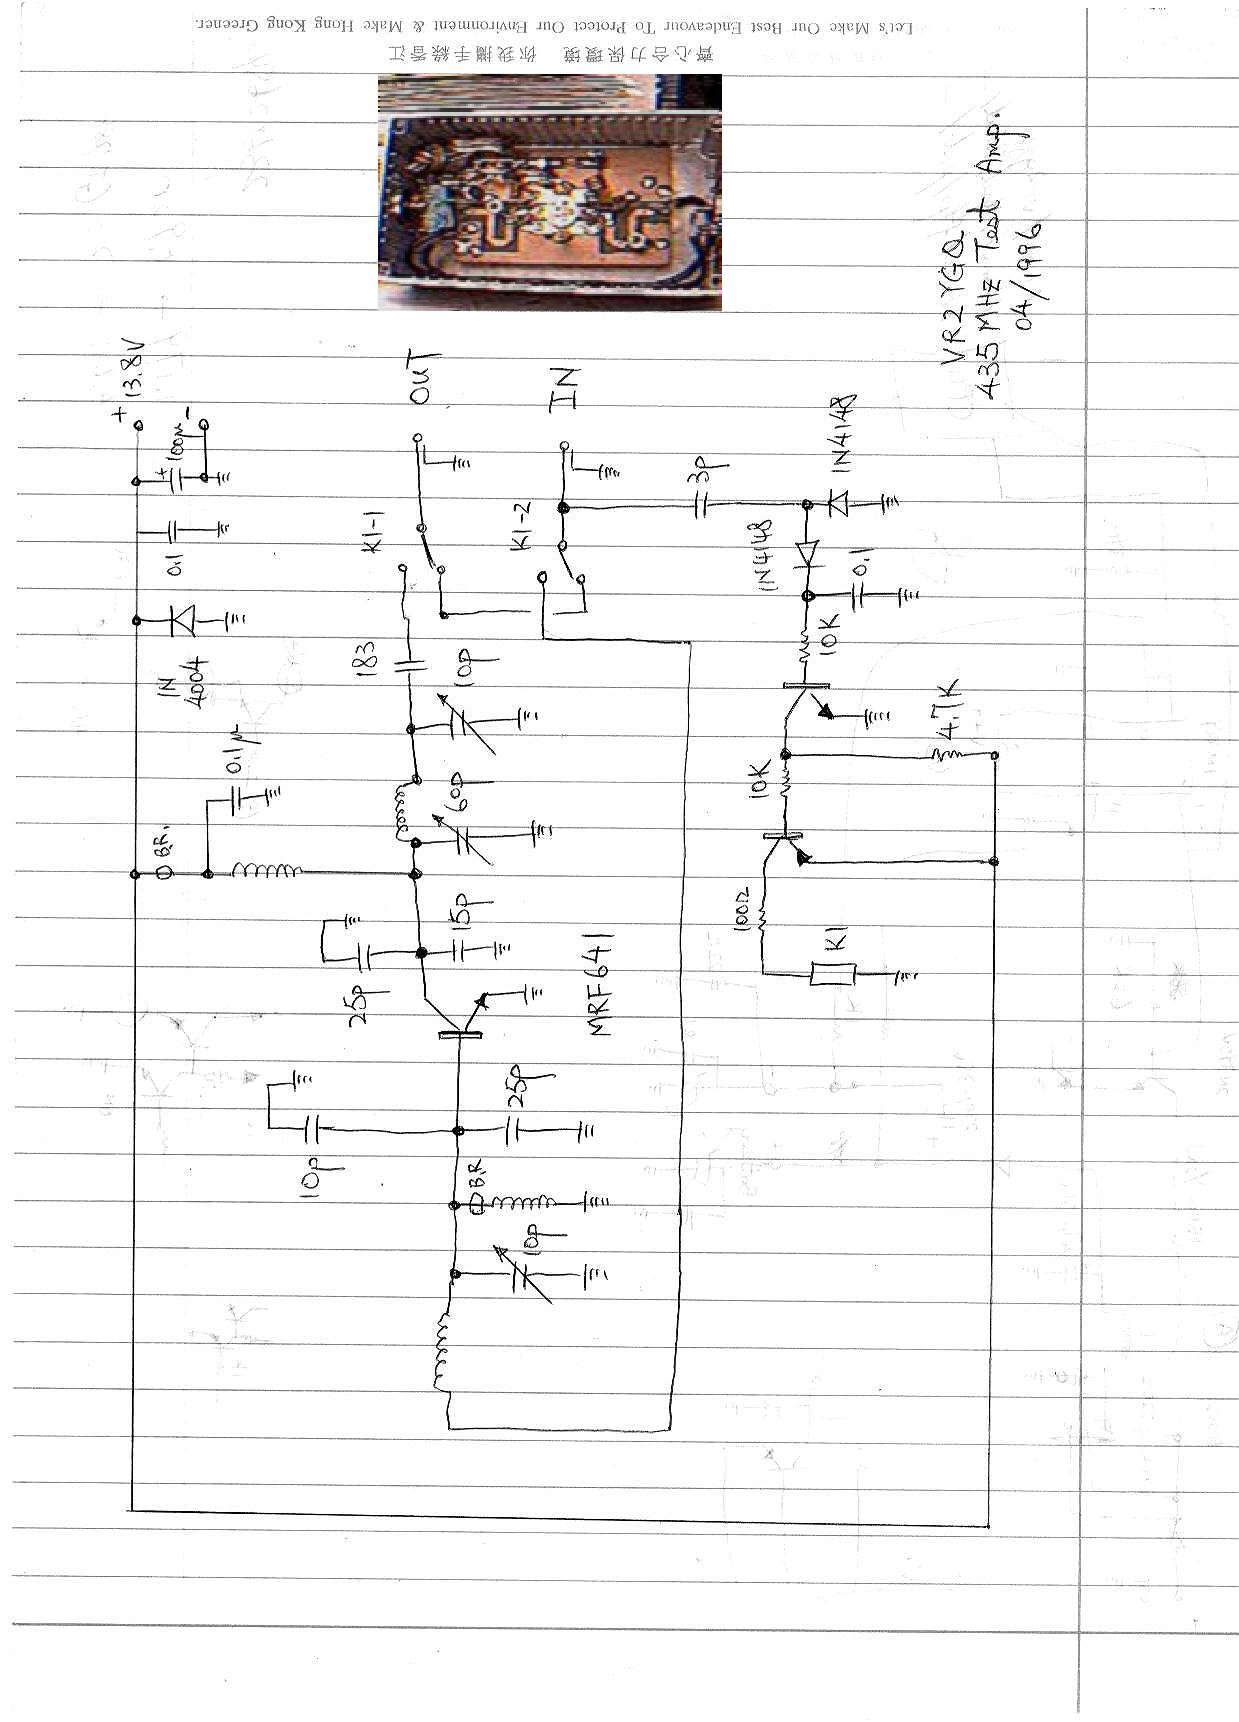 Let's Make Our Best Endeavour To Protect Our Environment & Make Hong Kong Greener.
齊心合力保環境 你我攜手綠香江
VR2YGQ
435 MHz Test Amp.
04/1996
+ 13.8V
-
+
100μ
0.1
1N
4004
0.1μ
BR.
OUT
K1-1
183
10p
60p
15p
25p
MRF641
10p
25p
BR
10p
IN
K1-2
3p
1N4148
1N4148
0.1
10K
4.7K
10K
100Ω
K1